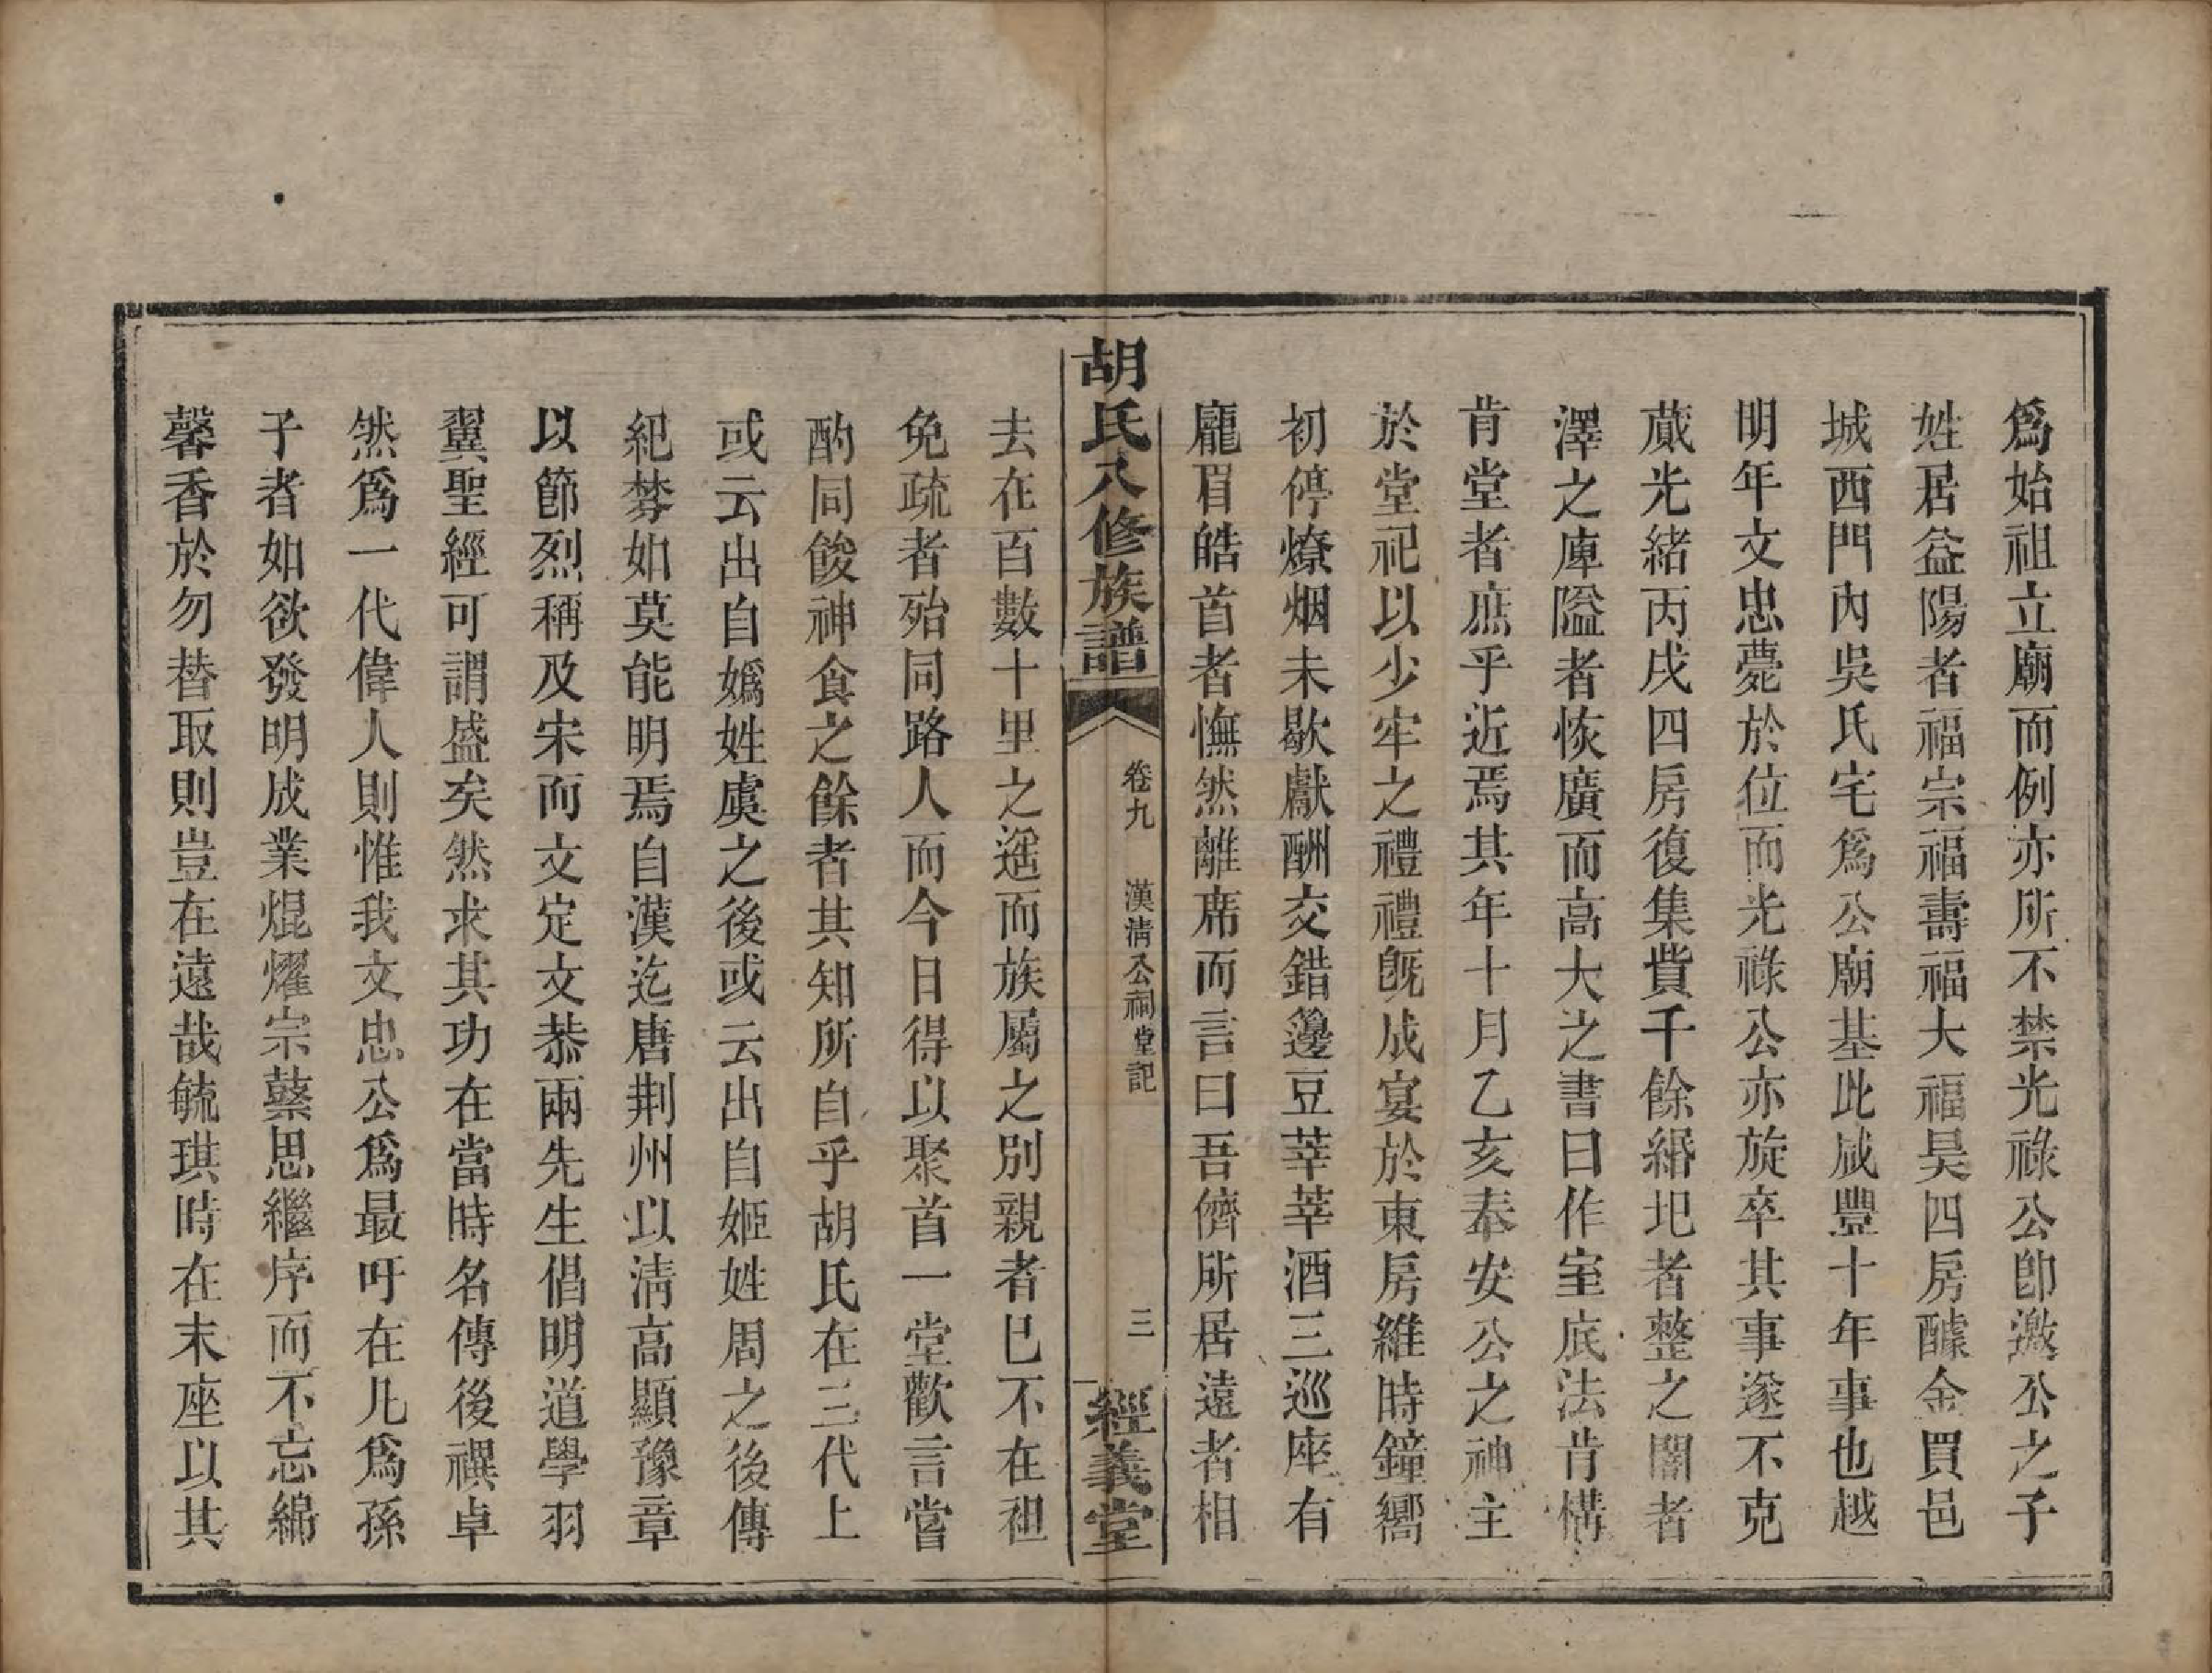 爲始祖立廟而例亦所不禁光祿公卽邀公之子
姓居益陽者福宗福壽福大福昊四房醵金買邑
城西門內吳氏宅爲公廟基此咸豐十年事也越
明年文忠薨於位而光祿公亦旋卒其事遂不克
蕆光緒丙戌四房復集貲千餘緡圯者整之闇者
澤之庳隘者恢廣而高大之書曰作室底法肯構
肯堂者庶乎近焉其年十月乙亥奉安公之神主
於堂祀以少牢之禮禮旣成宴於東房維時鐘嚮
初停燎烟未歇獻酬交錯籩豆莘莘酒三巡座有
龐眉皓首者憮然離席而言曰吾儕所居遠者相
胡氏八修族譜
卷九
漢淸公祠堂記
三
經義堂
去在百數十里之遙而族屬之別親者已不在袒
免疏者殆同路人而今日得以聚首一堂歡言嘗
酌同餕神食之餘者其知所自乎胡氏在三代上
或云出自嬀姓虞之後或云出自姬姓周之後傳
紀棼如莫能明焉自漢迄唐荆州以淸高顯豫章
以節烈稱及宋而文定文恭兩先生倡明道學羽
翼聖經可謂盛矣然求其功在當時名傳後禩卓
然爲一代偉人則惟我文忠公爲最吁在凡爲孫
子者如欲發明成業焜燿宗蓺思繼序而不忘綿
馨香於勿替取則豈在遠哉毓琪時在末座以其